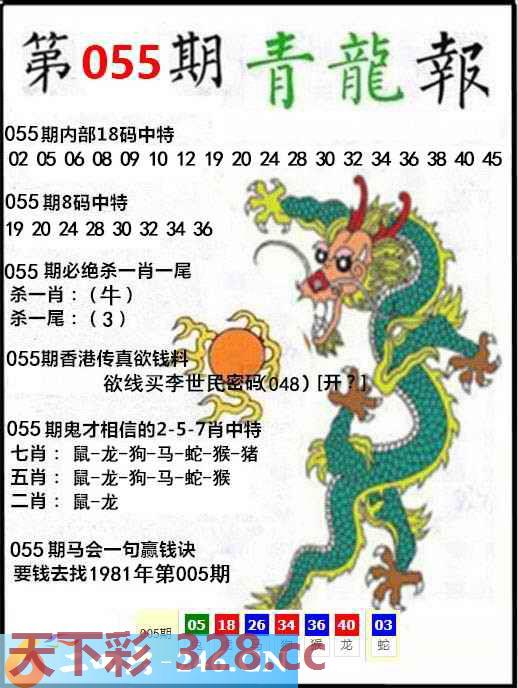 第055期青龍報
055期内部18码中特
02 05 06 08 09 10 12 19 20 24 28 30 32 34 36 38 40 45
055期8码中特
19 20 24 28 30 32 34 36
055 期必绝杀一肖一尾
杀一肖：（牛）
杀一尾：（3）
055期香港传真欲钱料
欲线买李世民密码(048) [开？]
055期鬼才相信的2-5-7肖中特
七肖： 鼠-龙-狗-马-蛇-猴-猪
五肖： 鼠-龙-狗-马-蛇-猴
二肖： 鼠-龙
055期马会一句赢钱诀
要钱去找1981年第005期
005期
05 18 26 34 36 40 03
猴 龙 蛇
天下彩 328.cc